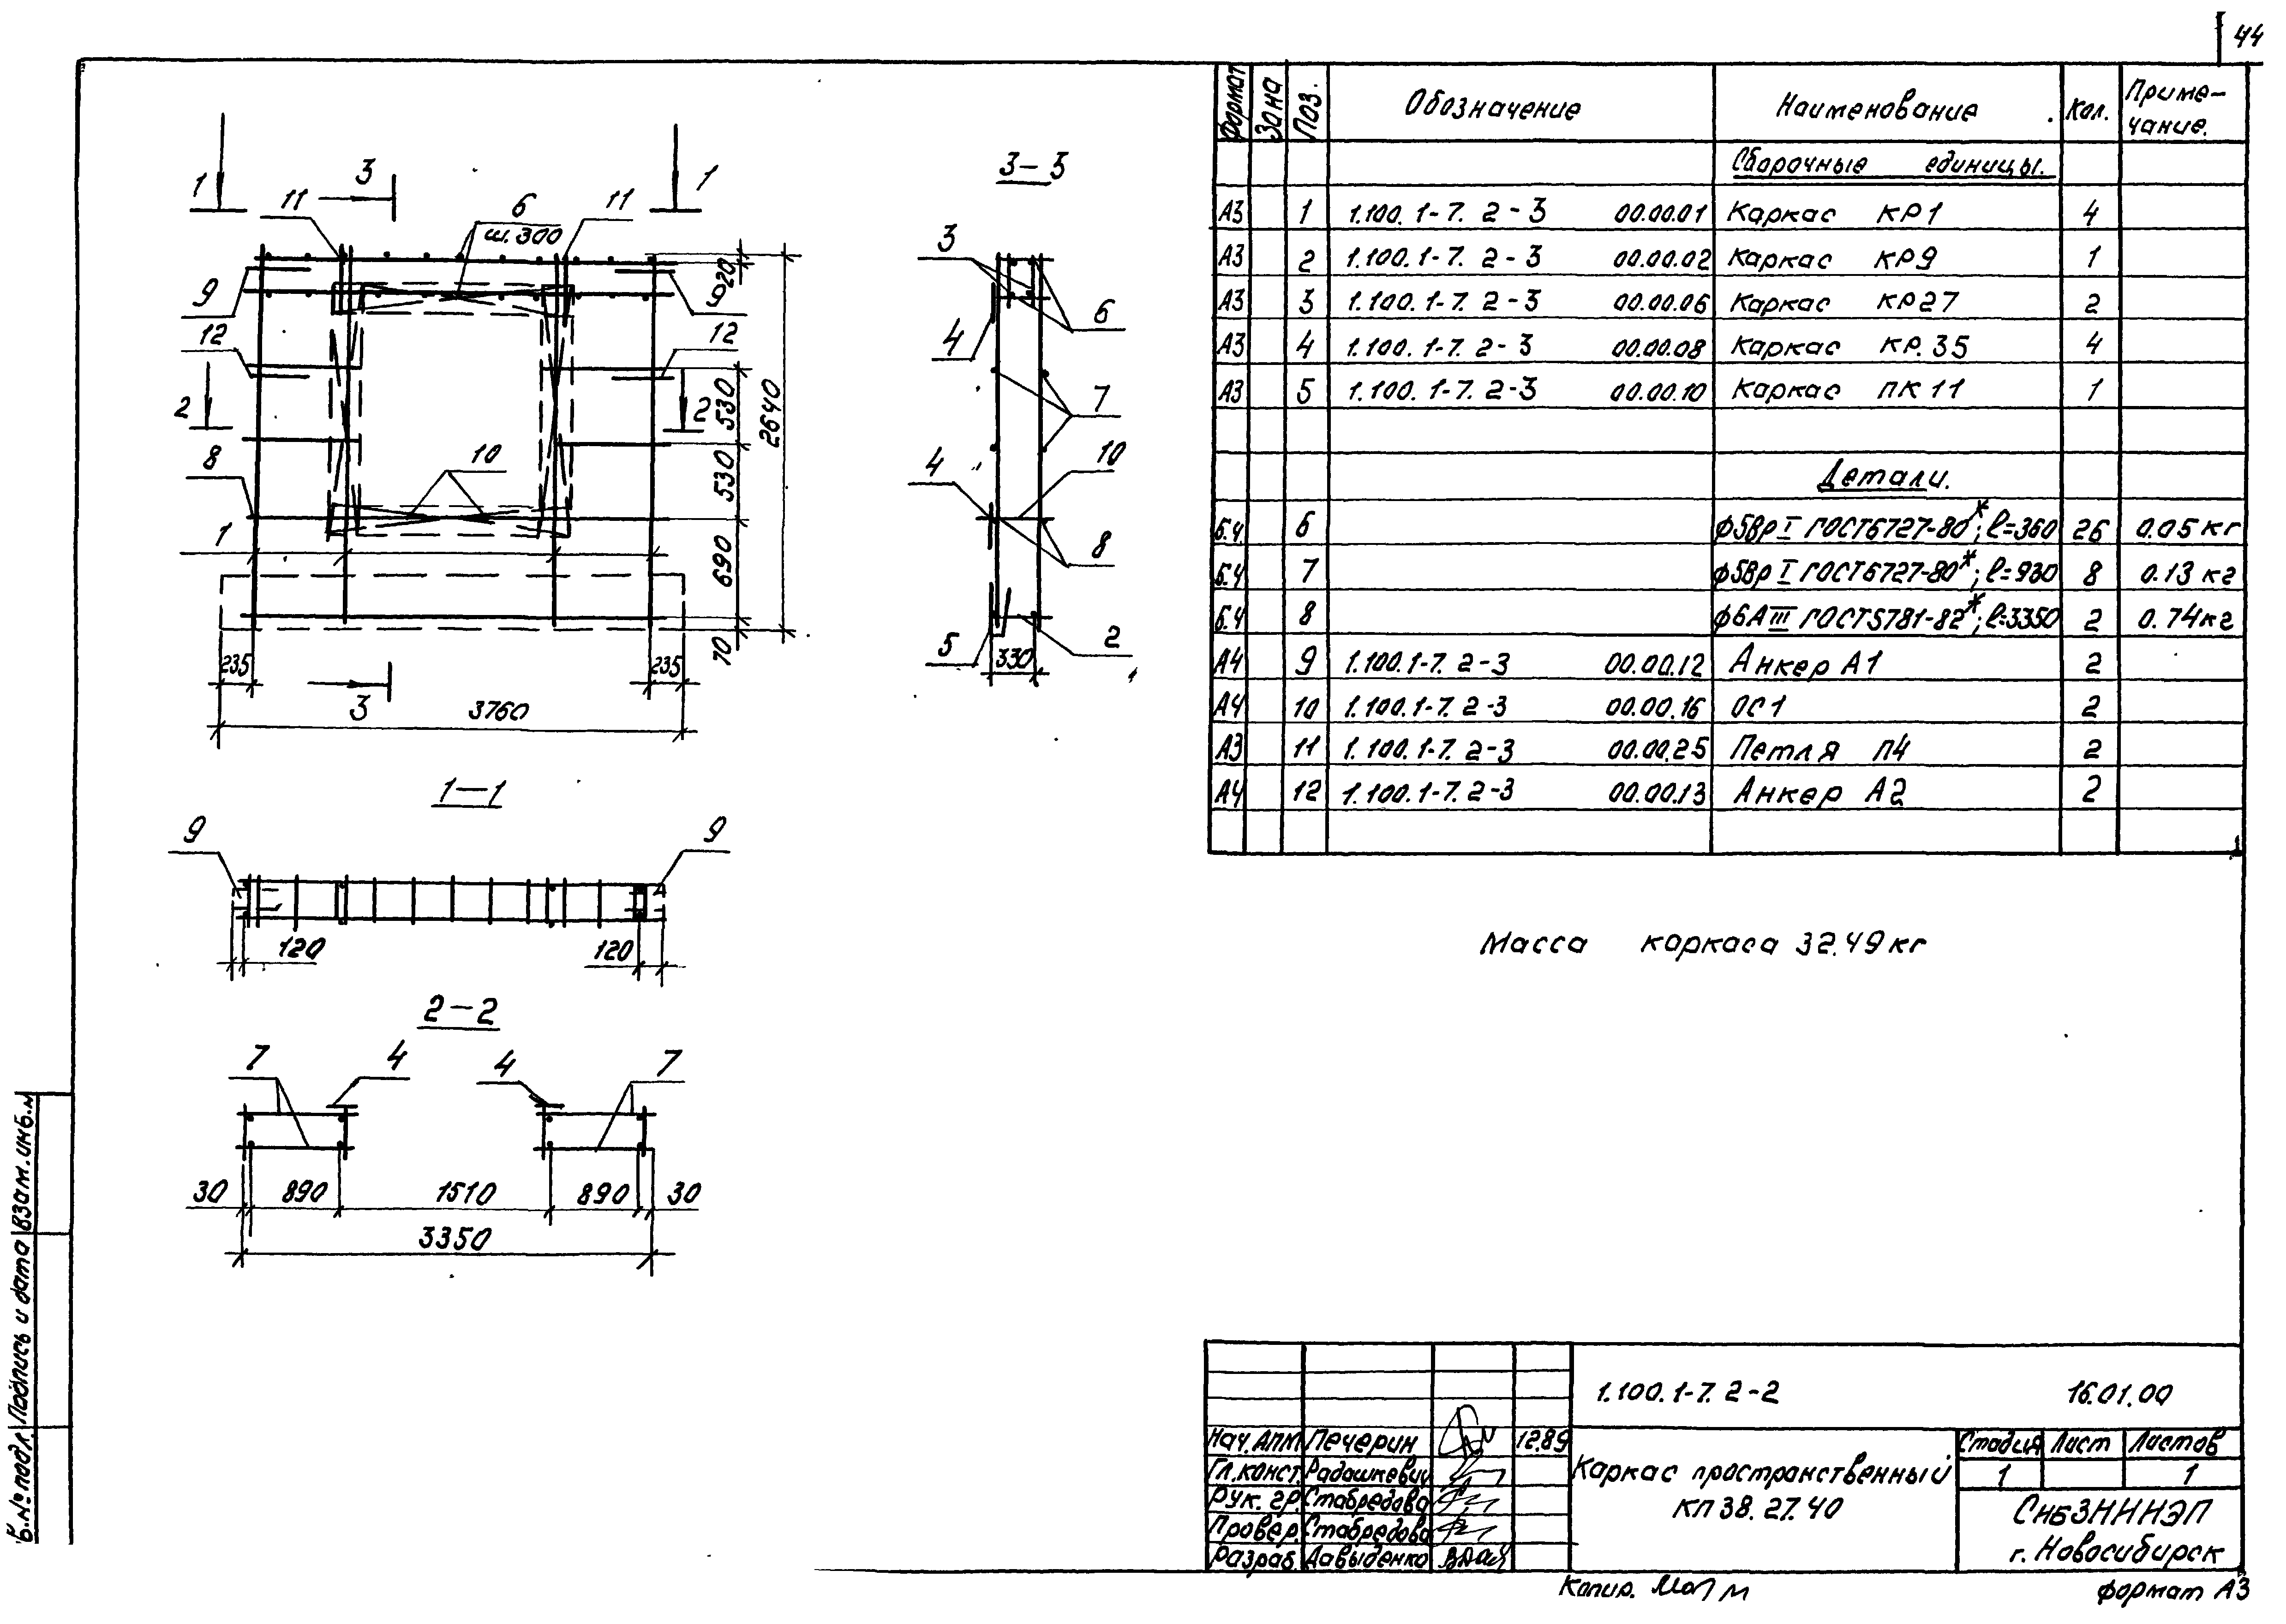 44
Формат Зона Поз. Обозначение Наименование Кол. Приме-
чание.
Сборочные единицы.
А3 1 1.100.1-7. 2-3 00.00.01 Каркас КР1 4
А3 2 1.100.1-7. 2-3 00.00.02 Каркас КР9 1
А3 3 1.100.1-7. 2-3 00.00.06 Каркас КР27 2
А3 4 1.100.1-7. 2-3 00.00.08 Каркас КР.35 4
А3 5 1.100.1-7. 2-3 00.00.10 Каркас ПК11 1
Детали.
Б.Ч. 6 ф5ВрI ГОСТ6727-80*; ℓ=360 26 0.05 кг
Б.Ч 7 ф5ВрI ГОСТ6727-80*; ℓ=930 8 0.13 кг
Б.Ч 8 ф6АIII ГОСТ5781-82*; ℓ=3350 2 0.74кг
А4 9 1.100.1-7. 2-3 00.00.12 Анкер А1 2
А4 10 1.100.1-7. 2-3 00.00.16 ОС1 2
А3 11 1.100.1-7. 2-3 00.00.25 Петля П4 2
А4 12 1.100.1-7. 2-3 00.00.13 Анкер А2 2
1 3 1
11 6 11
ш.300
9 9
12 12
2 2
8 10
1
120
530
530
690
70
2640
235 235
3 3760
3-3
3
6
4
7
4 10
8
5 2
330
1-1
9 9
120 120
2-2
7 4 4 7
30 890 1510 890 30
3350
Масса каркаса 32.49кг
1.100.1-7. 2-2 16.01.00
Нач. АПМ Печерин 12.89
Гл.конст. Радашкевич
Рук. гр. Стабредова
Провер. Стабредова
Разраб. Давыденко
Каркас пространственный
КП 38.27.40
Стадия Лист Листов
1 1
СибЗНИИЭП
г. Новосибирск
Копир.
Формат А3
Подпись и дата
Взам. инб. н
№ подл.